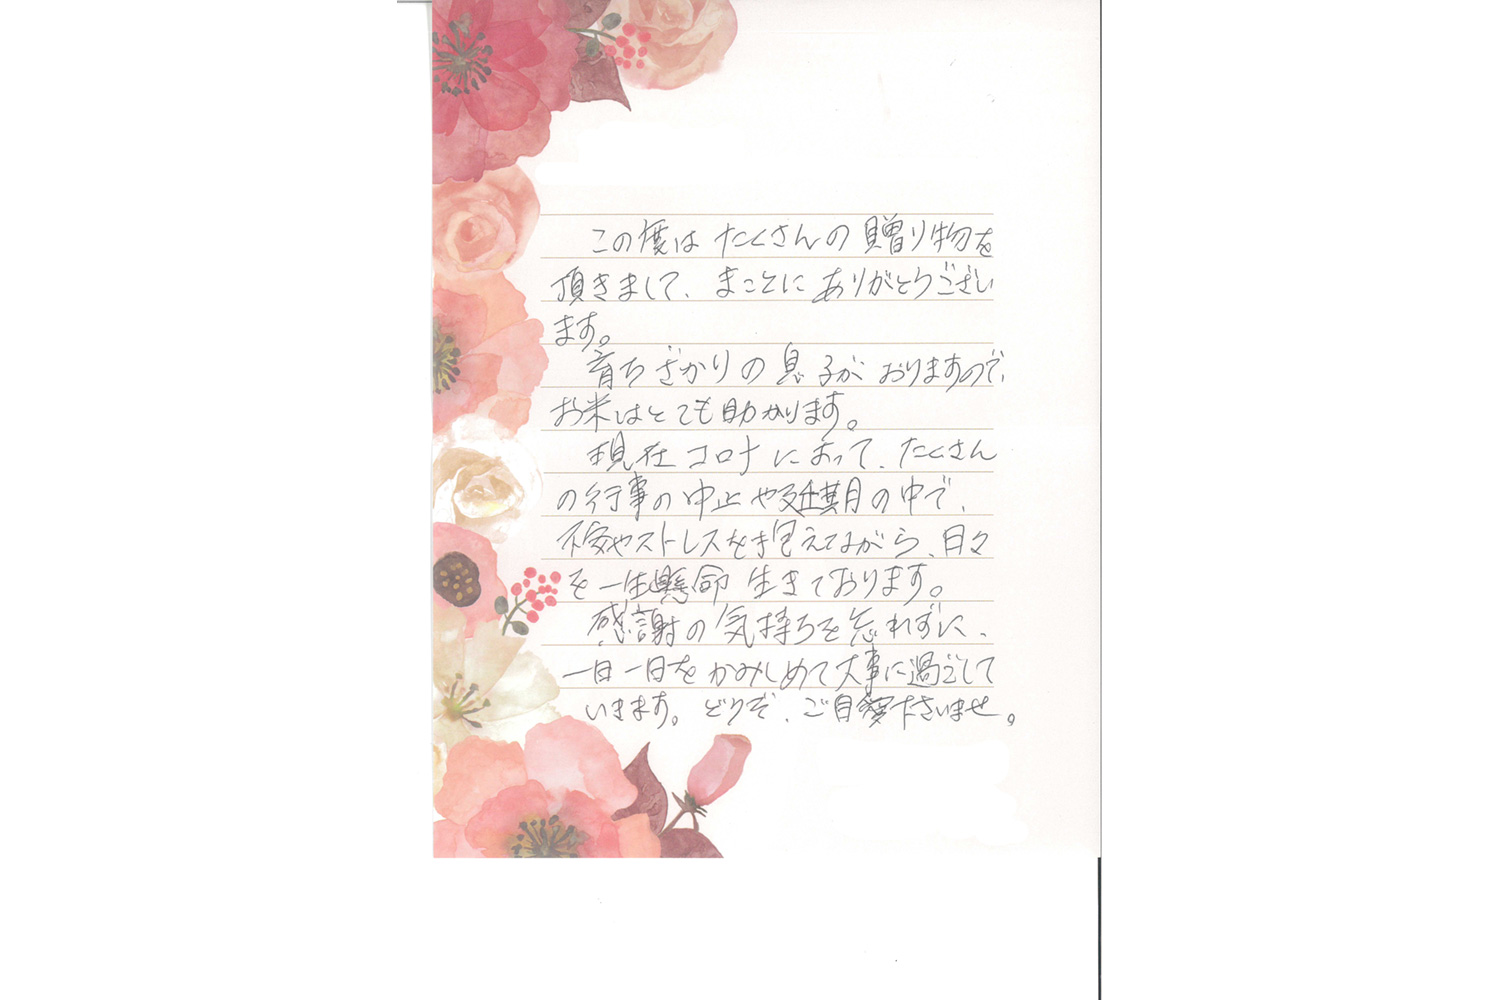 この度は たくさんの 贈り物を
頂きまして、まことに ありがとうござい
ます。
育ちざかりの 息子が おりますので、
お米はとても助かります。
現在 コロナ によって、たくさん
の行事の中止や延期の中で、
不安やストレスを抱えてながら、日々
を一生懸命 生きております。
感謝の気持ちを忘れずに、
一日一日を かみしめて大事に過ごして
いきます。どうぞ、ご自愛下さいませ。